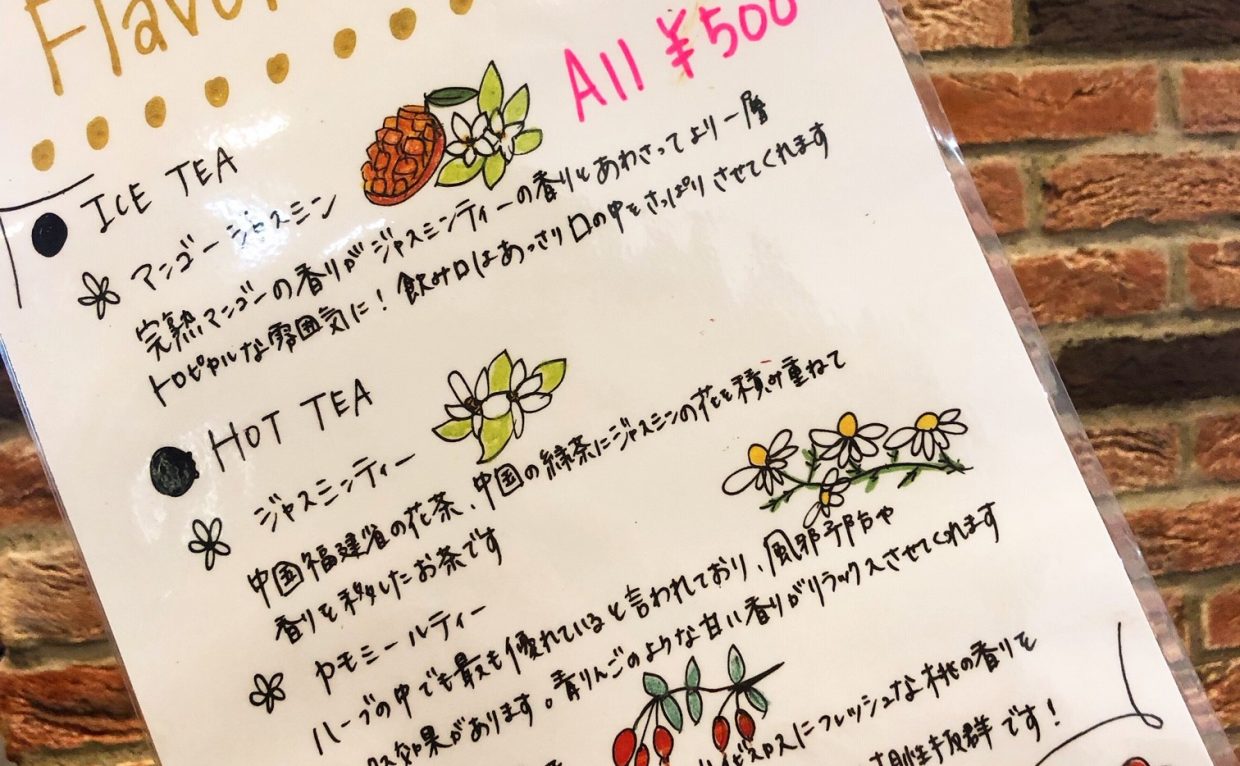 Flavor
All ¥500
ICE TEA
マンゴージャスミン
完熟マンゴーの香りがジャスミンティーの香りとあわさってより一層
トロピカルな雰囲気に！飲み口はあっさり口の中をさっぱりさせてくれます
HOT TEA
ジャスミンティー
中国福建省の花茶、中国の緑茶にジャスミンの花を積み重ねて
香りを移したお茶です
カモミールティー
ハーブの中でも最も優れていると言われており、風邪予防や
効果があります。青りんごのような甘い香りがリラックスさせてくれます
にフレッシュな桃の香りを
相性抜群です！